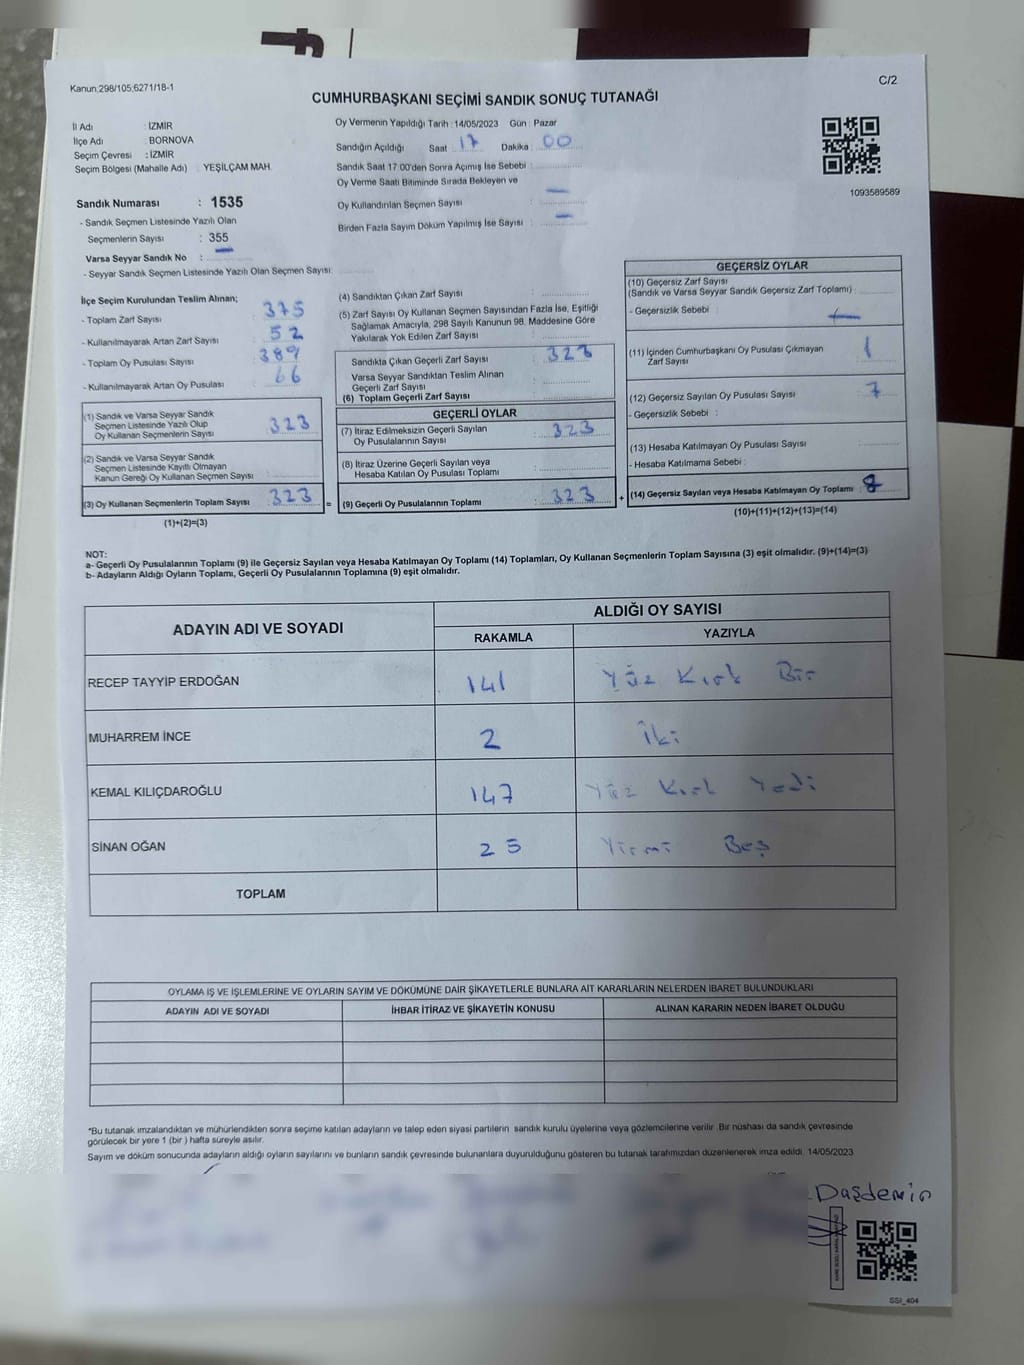 Kanun,298/105,6271/18-1
C/2
CUMHURBAŞKANI SEÇİMİ SANDIK SONUÇ TUTANAĞI
İl Adı : İZMİR
İlçe Adı : BORNOVA
Seçim Çevresi : İZMİR
Seçim Bölgesi (Mahalle Adı) : YEŞİLÇAM MAH.
Oy Vermenin Yapıldığı Tarih : 14/05/2023 Gün : Pazar
Sandığın Açıldığı Saat : 17 Dakika : 00
Sandık Saat 17:00'den Sonra Açımış İse Sebebi :
Oy Verme Saati Bitiminde Sırada Bekleyen ve
Oy Kullandırılan Seçmen Sayısı : —
Birden Fazla Sayım Döküm Yapılmış İse Sayısı : —
1093589589
Sandık Numarası : 1535
- Sandık Seçmen Listesinde Yazılı Olan
Seçmenlerin Sayısı : 355
Varsa Seyyar Sandık No : —
- Seyyar Sandık Seçmen Listesinde Yazılı Olan Seçmen Sayısı:
İlçe Seçim Kurulundan Teslim Alınan;
- Toplam Zarf Sayısı : 375
- Kullanılmayarak Artan Zarf Sayısı : 52
- Toplam Oy Pusulası Sayısı : 389
- Kullanılmayarak Artan Oy Pusulası : 66
(1) Sandık ve Varsa Seyyar Sandık
Seçmen Listesinde Yazılı Olup
Oy Kullanan Seçmenlerin Sayısı : 323
(2) Sandık ve Varsa Seyyar Sandık
Seçmen Listesinde Kayıtlı Olmayan
Kanun Gereği Oy Kullanan Seçmen Sayısı :
(3) Oy Kullanan Seçmenlerin Toplam Sayısı : 323
(1)+(2)=(3)
(4) Sandıktan Çıkan Zarf Sayısı :
(5) Zarf Sayısı Oy Kullanan Seçmen Sayısından Fazla İse, Eşitliği
Sağlamak Amacıyla, 298 Sayılı Kanunun 98. Maddesine Göre
Yakılarak Yok Edilen Zarf Sayısı :
Sandıkta Çıkan Geçerli Zarf Sayısı : 323
Varsa Seyyar Sandıktan Teslim Alınan
Geçerli Zarf Sayısı :
(6) Toplam Geçerli Zarf Sayısı
GEÇERLİ OYLAR
(7) İtiraz Edilmeksizin Geçerli Sayılan
Oy Pusulalarının Sayısı : 323
(8) İtiraz Üzerine Geçerli Sayılan veya
Hesaba Katılan Oy Pusulası Toplamı :
= (9) Geçerli Oy Pusulalarının Toplamı : 323 +
GEÇERSİZ OYLAR
(10) Geçersiz Zarf Sayısı
(Sandık ve Varsa Seyyar Sandık Geçersiz Zarf Toplamı) :
- Geçersizlik Sebebi : —
(11) İçinden Cumhurbaşkanı Oy Pusulası Çıkmayan
Zarf Sayısı : 1
(12) Geçersiz Sayılan Oy Pusulası Sayısı : 7
- Geçersizlik Sebebi :
(13) Hesaba Katılmayan Oy Pusulası Sayısı :
- Hesaba Katılmama Sebebi :
(14) Geçersiz Sayılan veya Hesaba Katılmayan Oy Toplamı : 8
(10)+(11)+(12)+(13)=(14)
NOT:
a- Geçerli Oy Pusulalarının Toplamı (9) ile Geçersiz Sayılan veya Hesaba Katılmayan Oy Toplamı (14) Toplamları, Oy Kullanan Seçmenlerin Toplam Sayısına (3) eşit olmalıdır. (9)+(14)=(3)
b- Adayların Aldığı Oyların Toplamı, Geçerli Oy Pusulalarının Toplamına (9) eşit olmalıdır.
ADAYIN ADI VE SOYADI
ALDIĞI OY SAYISI
RAKAMLA YAZIYLA
RECEP TAYYİP ERDOĞAN 141 Yüz Kırk Bir
MUHARREM İNCE 2 İki
KEMAL KILIÇDAROĞLU 147 Yüz Kırk Yedi
SİNAN OĞAN 25 Yirmi Beş
TOPLAM
OYLAMA İŞ VE İŞLEMLERİNE VE OYLARIN SAYIM VE DÖKÜMÜNE DAİR ŞİKAYETLERLE BUNLARA AİT KARARLARIN NELERDEN İBARET BULUNDUKLARI
ADAYIN ADI VE SOYADI İHBAR İTİRAZ VE ŞİKAYETİN KONUSU ALINAN KARARIN NEDEN İBARET OLDUĞU
*Bu tutanak imzalandıktan ve mühürlendikten sonra seçime katılan adayların ve talep eden siyasi partilerin sandık kurulu üyelerine veya gözlemcilerine verilir. Bir nüshası da sandık çevresinde
görülecek bir yere 1 (bir ) hafta süreyle asılır.
Sayım ve döküm sonucunda adayların aldığı oyların sayılarını ve bunların sandık çevresinde bulunanlara duyurulduğunu gösteren bu tutanak tarafımızdan düzenlenerek imza edildi. 14/05/2023
Daşdemir
SSI_404